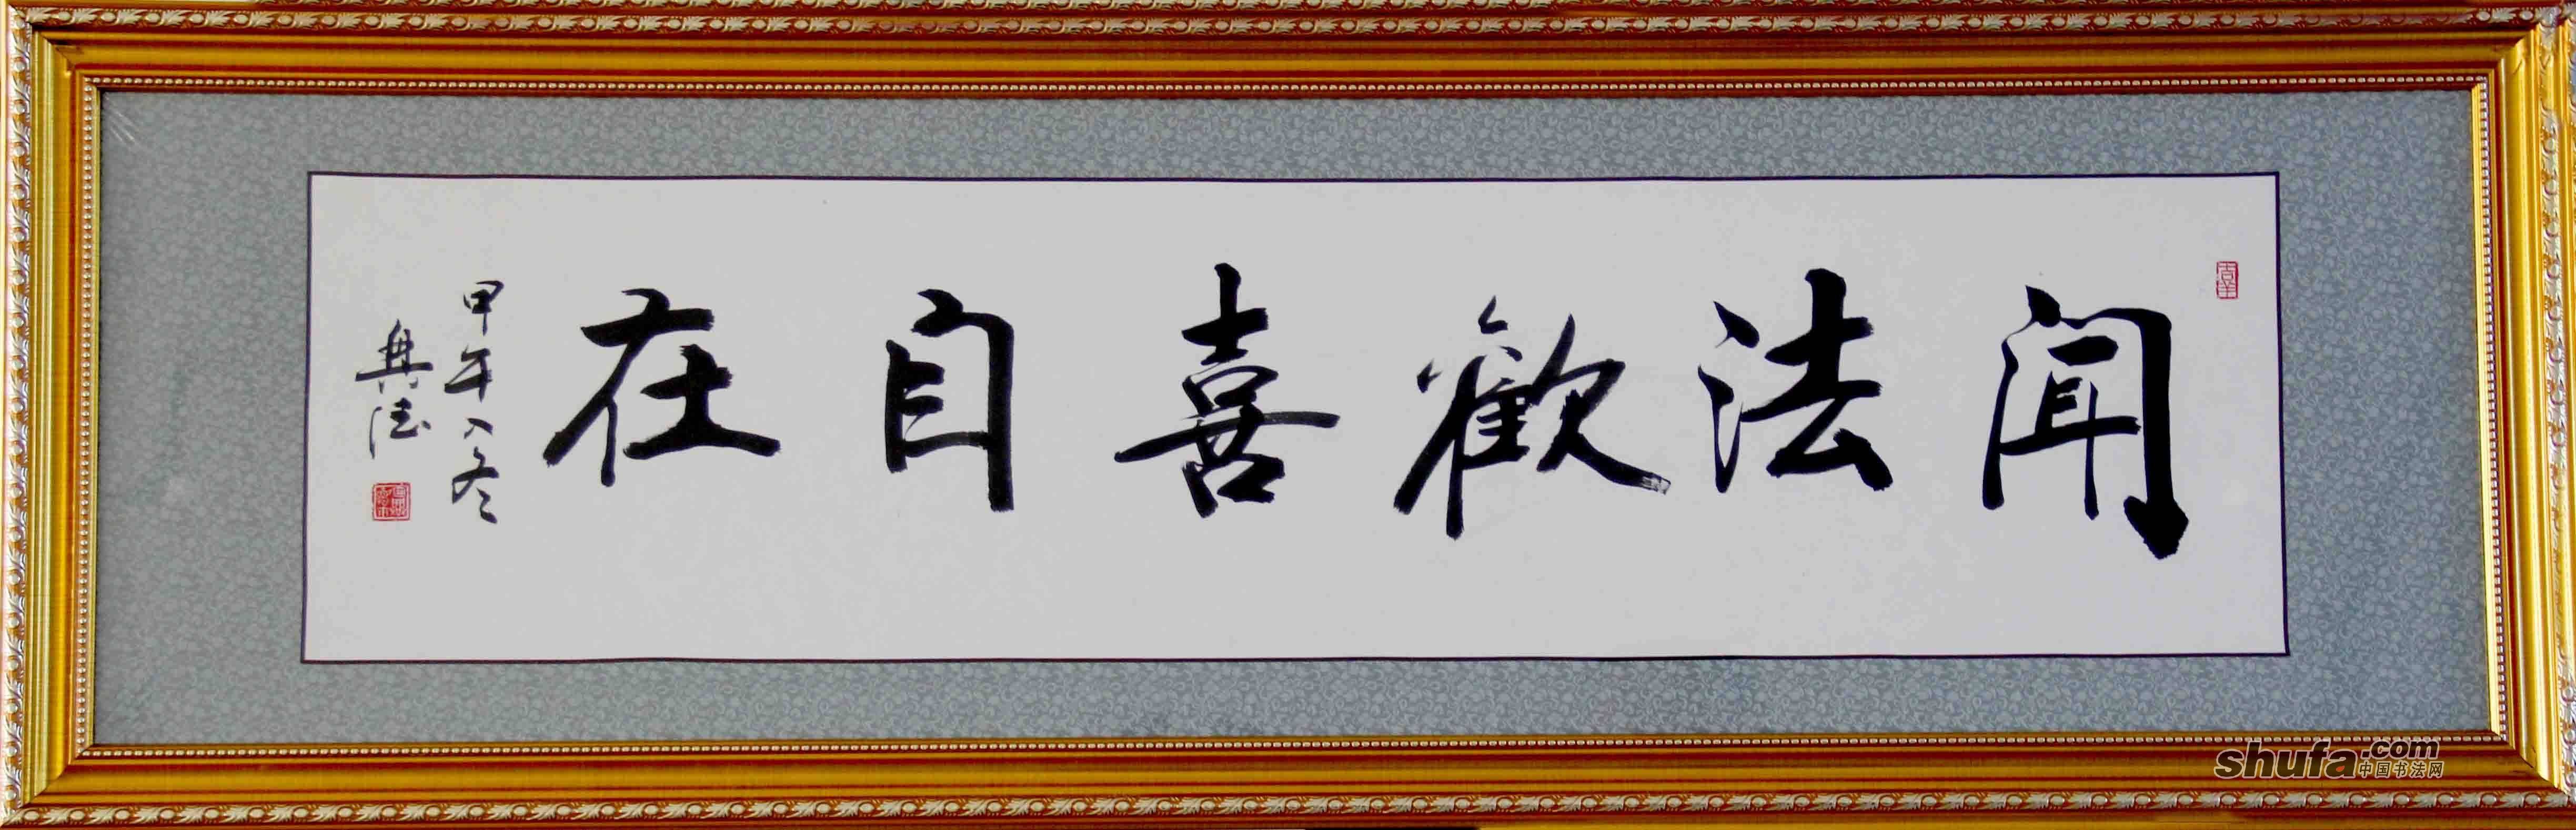 聞法歡喜自在
甲午入冬
典德
shufa.com
中国书法网